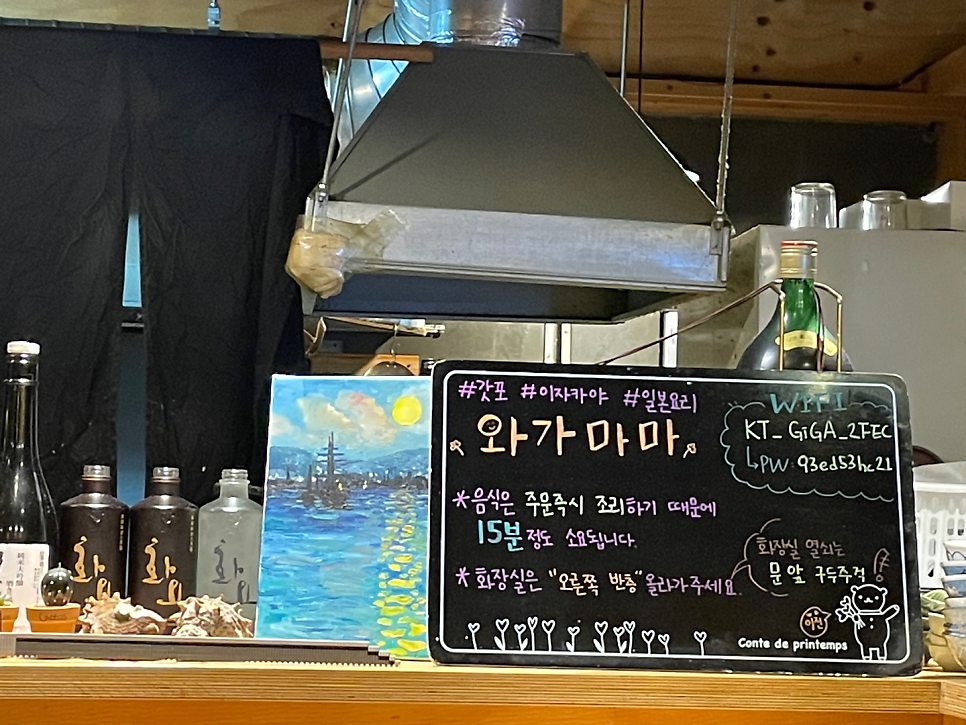 #갓포 #이자카야 #일본요리
와가마마
WIFI
KT_GiGA_2FEC
PW 93ed53hc21
*음식은 주문즉시 조리하기 때문에
15분정도 소요됩니다.
*화장실은 "오른쪽 반층"올라가주세요.
화장실 열쇠는
문앞 구두주걱
이전
Conte de printemps
화요
화요
화요
純米大吟醸